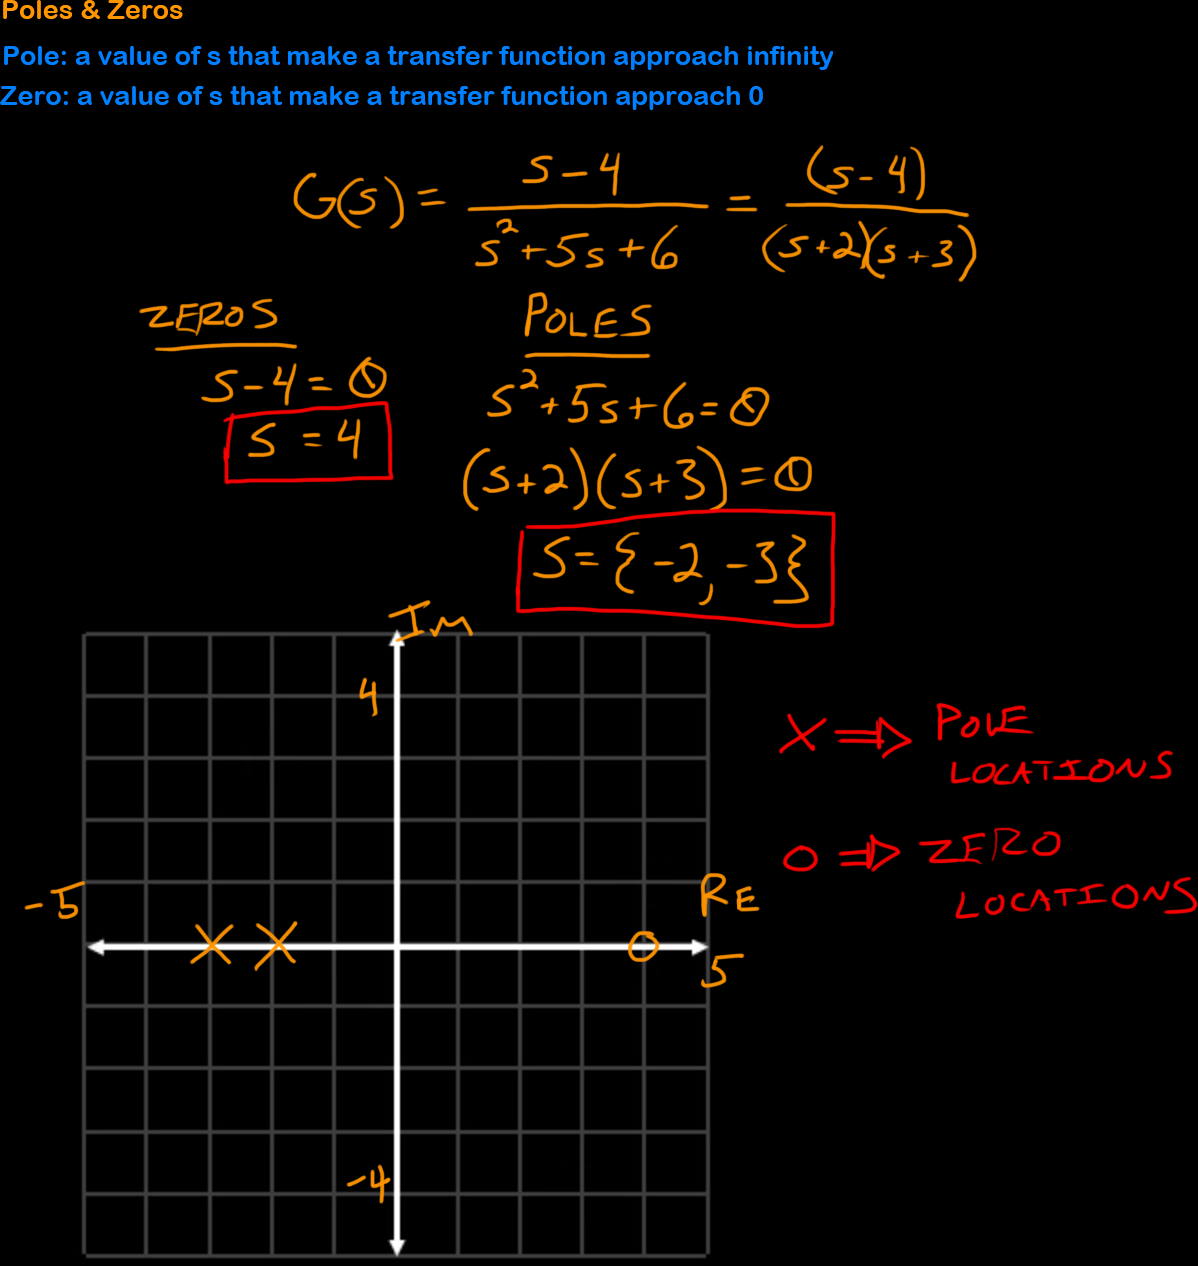 Poles & Zeros
Pole: a value of s that make a transfer function approach infinity
Zero: a value of s that make a transfer function approach 0
G(s) = (s-4)/(s²+5s+6) = (s-4)/((s+2)(s+3))
ZEROS
s-4=0
s=4
POLES
s²+5s+6=0
(s+2)(s+3)=0
s={-2,-3}
Im
4
-5
RE
5
-4
X ⇒ POLE
LOCATIONS
O ⇒ ZERO
LOCATIONS